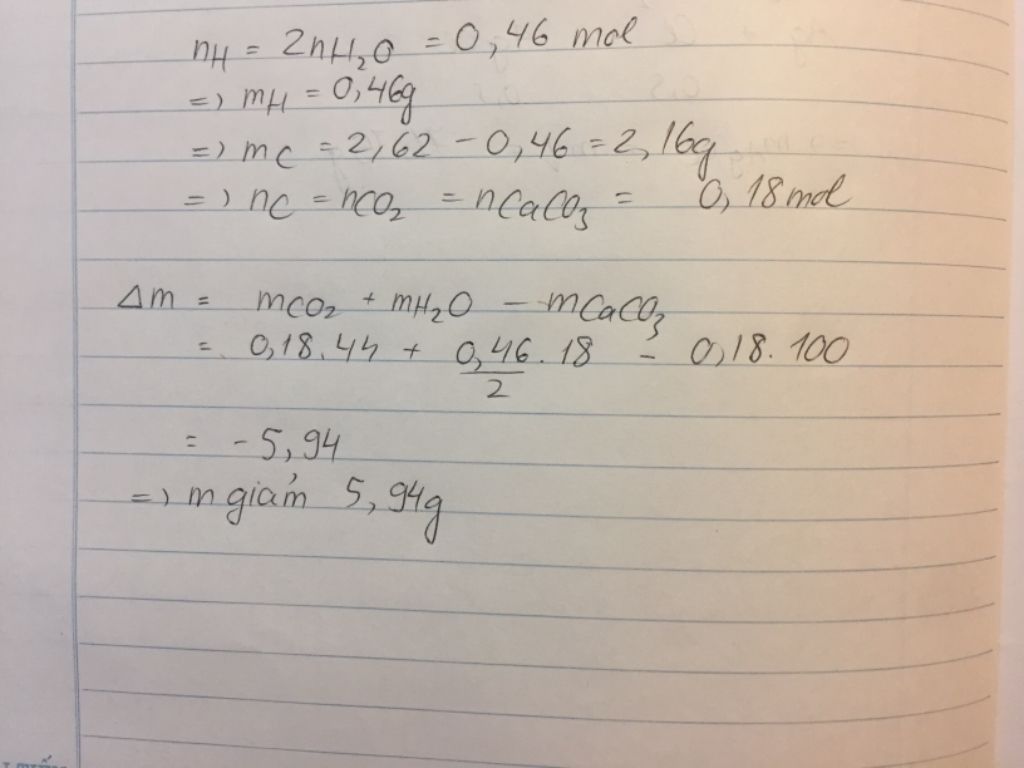 nH = 2nH₂O = 0,46 mol
=> mH = 0,46g
=> mC = 2,62 - 0,46 = 2,16g
=> nC = nCO₂ = nCaCO₃ = 0,18 mol
Δm = mCO₂ + mH₂O - mCaCO₃
= 0,18.44 + 0,46/2 . 18 - 0,18.100
= -5,94
=> m giảm 5,94g